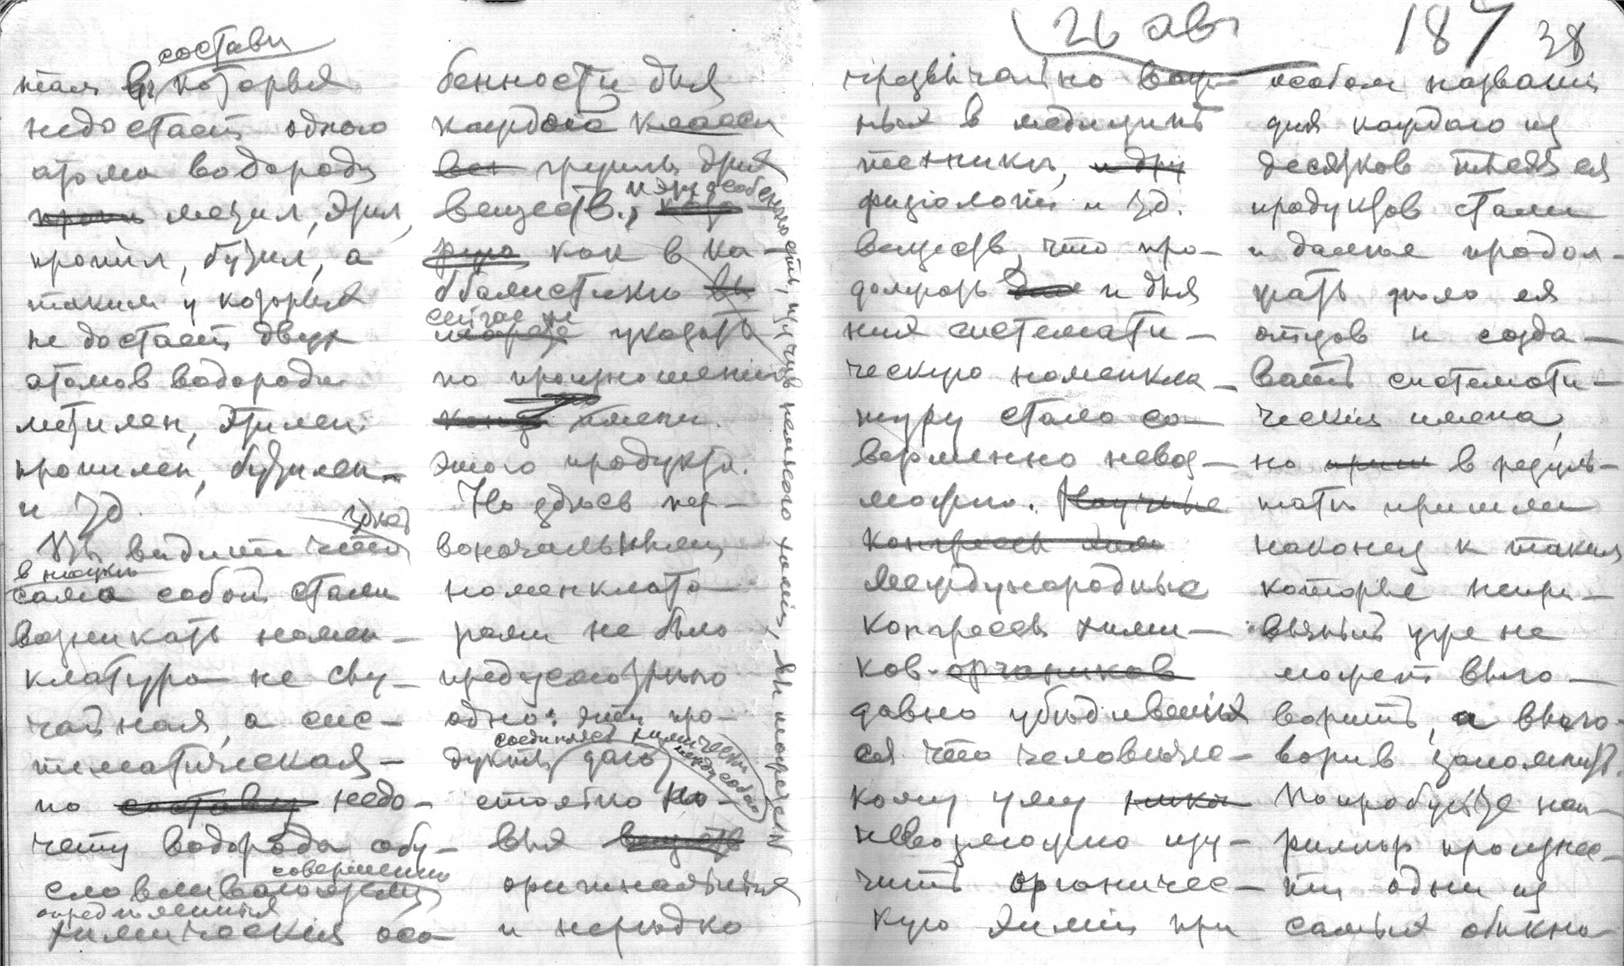 26 ав
187 38
составы
которыя
недостает одного
атома водорода
метил, этил,
пропил, бутил, а
таким у которых
не достает двух
атомов водорода
метилен, этилен
пропилен, бутилен
и тд.
видим что здесь
в науке
сама собой стали
возникать номен-
клатура не слу-
чайная, а сис-
тематическая
по составу недо-
чету водорода обу-
совершенно
словливающему
определенныя
химическия осо-
бенности для
каждаго класса
вся группы этих
веществ.,
как в ка-
ббалистике
сейчас же
указать
по произношению
имени
этого продукта.
Но здесь пер-
воначальным
номенклато-
рам не было
предусмотрено
одно: эти про-
дукты
соединяясь химически
между собою
дают
столько но-
вых веществ
оригинальных
и нередко
немного химию, вы можете
чрезвычайно важ-
ных в медицине
технике, и др
физіологіи и тд.
веществ, что про-
должать и для
них системати-
ческую номенкла-
туру стало со-
вершенно невоз-
можно. Научные
конгрессы хим
Международные
конгрессы хими-
ков органиков
давно убедившись
ся что человече-
кому уму
невозможно изу-
чить органичес-
кую химию при
особом названіи
для каждаго из
десятков тысяч ея
продуктов стали
и далее продол-
жать дело ея
отцов и созда-
вать системати-
ческія имена,
но в резуль-
тате пришли
наконец к таким
которые непри-
вычный уже не
может выго-
ворить, а выго-
ворив запомнить
Попробуйте нап-
ример произнес-
ти одни из
самых обыкно-